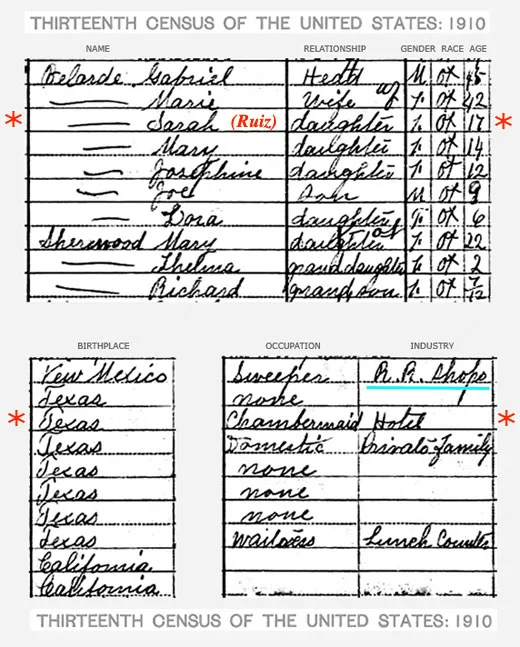 THIRTEENTH CENSUS OF THE UNITED STATES: 1910
NAME RELATIONSHIP GENDER RACE AGE
Velarde Gabriel Head M Ot 45
Marie Wife F Ot 42
* Sarah (Ruiz) daughter F Ot 17 *
Mary daughter F Ot 14
Josephine daughter F Ot 12
Joe Son M Ot 9
Dora daughter F Ot 6
Sherwood Mary daughter F Ot 22
Thelma granddaughter F Ot 2
Richard grandson Ot 7/12
BIRTHPLACE OCCUPATION INDUSTRY
New Mexico Sweeper R. R. Shops
Texas none
* Texas Chambermaid Hotel *
Texas Domestic Private Family
Texas none
Texas none
Texas none
Texas Waitress Lunch Counter
California
California
THIRTEENTH CENSUS OF THE UNITED STATES: 1910